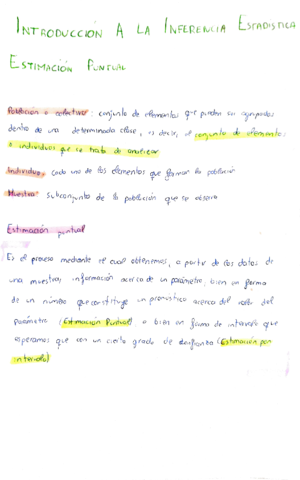 INTRODUCCIÓN A LA INFERENCIA ESTADISTICA
ESTIMACIÓN PUNTUAL
Población o colectivo: conjunto de elementos que pueden ser agrupados
dentro de una determinada clase, es decir, el conjunto de elementos
o individuos que se trata de analizar
Individuo: cada uno de los elementos que forman la población
Muestra: subconjunto de la población que se observa
Estimación puntual
Es el proceso mediante el cual obtenemos, a partir de los datos de
una muestra, información acerca de un parámetro, bien en forma
de un número que constituye un pronóstico acerca del valor del
parámetro (Estimación Puntual) o bien en forma de intervalo que
esperamos que con un cierto grado de confianza (Estimación por
intervalo)